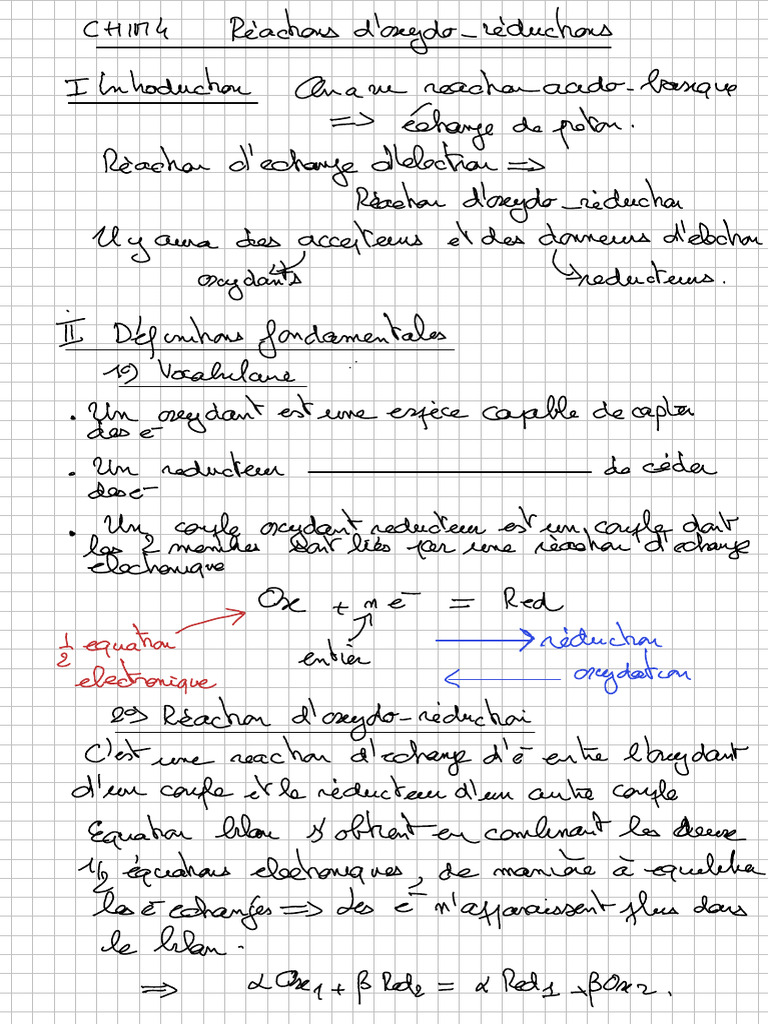 CHIM4 Réactions d'oxydo-réductions
I Introduction On a vu reaction acido-basique
=> échange de proton.
Réaction d'echange d'électron =>
Réaction d'oxydo-réduction
Il y aura des accepteurs et des donneurs d'electron
oxydants reducteurs.
II Définitions fondamentales
1°) Vocabulaire
. Un oxydant est une espèce capable de capter
des e⁻
. Un reducteur ———————— de céder
des e⁻
. Un couple oxydant reducteur est un couple dont
les 2 membres sont liés par une réaction d'echange
electronique
Ox + n e⁻ = Red
1/2 equation
electronique
entier
réduction
oxydation
2°) Réaction d'oxydo-réduction
C'est une reaction d'echange d'e⁻ entre l'oxydant
d'un couple et le réducteur d'un autre couple
Equation bilan s'obtient en combinant les deux
1/2 équations electroniques, de manière à equilibrer
les e⁻ echangés => des e⁻ n'apparaissent plus dans
le bilan.
=> α Ox₁ + β Red₂ = α Red₁ + β Ox₂.